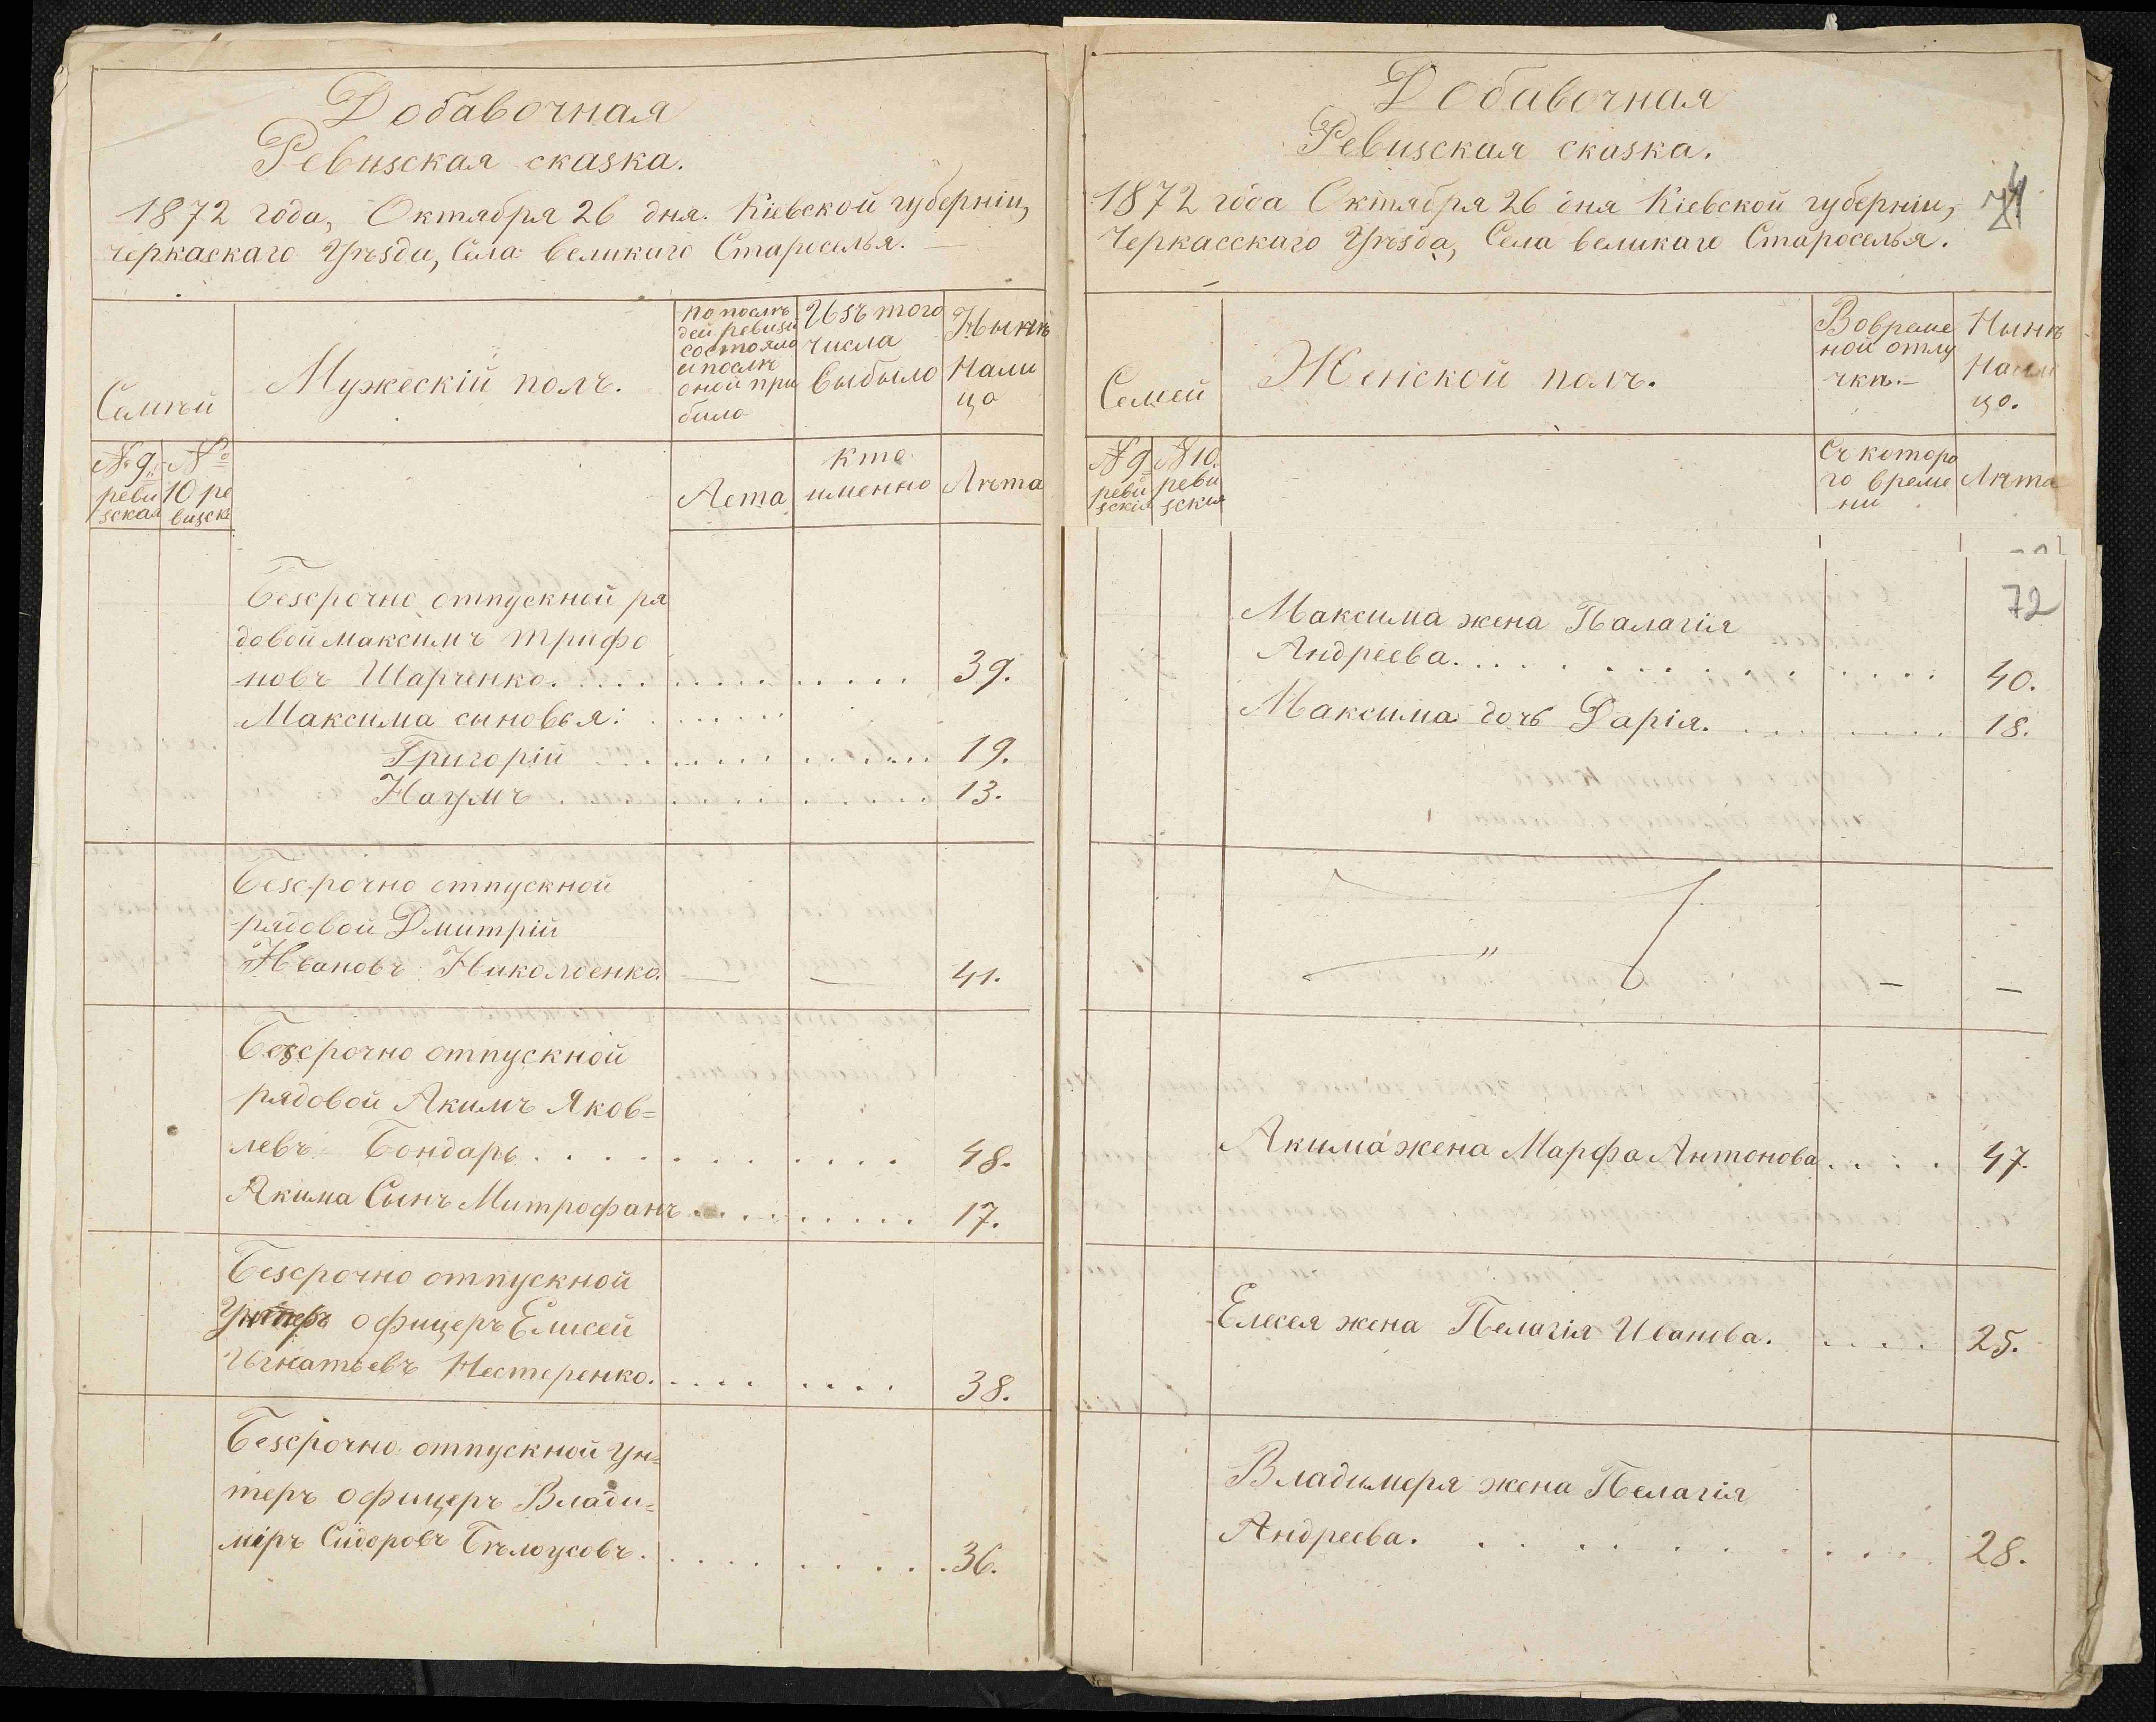 Добавочная
Ревизская сказка.
1872 года, Октября 26 дня. Кіевской губерніи,
Черкаскаго Уѣзда, Села Великаго Староселья.
Семѣй
Мужескій полъ.
По послѣ
дей ревизи
состояло
и послѣ
оной при
било
Изъ того
числа
выбыло
Нынѣ
Нали
цо
№ 9.
реви
зская
№
10 ре
визск
Лета
кто
именно
Лѣта
Безсрочно отпускной ря
довой Максимъ Трифо
новъ Шарченко. 39.
Максима сыновья:
Григорій 19.
Наумъ 13.
Безсрочно отпускной
рядовой Дмитрій
Ивановъ Николаенко. — — 41.
Безсрочно отпускной
рядовой Акимъ Яков=
левъ Бондарь 48.
Якима Сынъ Митрофанъ 17.
Безсрочно отпускной
Унтеръ офицеръ Елисей
Игнатьевъ Нестеренко. 38.
Безсрочно отпускной ун=
теръ офицеръ Влади=
міръ Сидоровъ Бѣлоусовъ. 36.
Добавочная
Ревизская сказка.
1872 года Октября 26 дня Кіевской губерніи,
Черкасскаго Уѣзда, Села Великаго Староселья.
Семей
Женской полъ.
Во време
ной отлу
чкѣ.–
Нынѣ
Нали
цо.
№ 9
реви
зскія
№ 10.
реви
зския
Съ которо
го време
ни
Лѣта
72
Максима жена Палагія
Андреева. 40.
Максима дочь Дарія. 18.
„ — —
Акима жена Марфа Антонова 47.
Елесея жена Пелагія Иванова. 25.
Владимеря жена Пелагія
Андреева. 28.